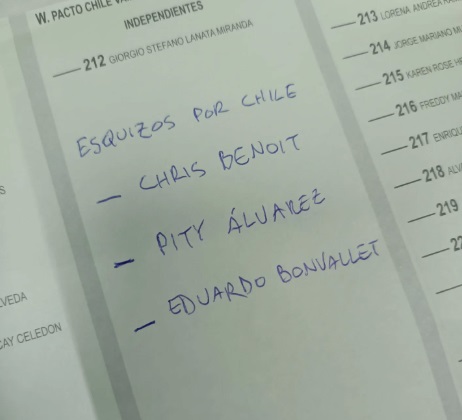 W. PACTO CHILE
INDEPENDIENTES
212 GIORGIO STEFANO LANATA MIRANDA
ESQUIZOS POR CHILE
— CHRIS BENOIT
— PITY ÁLVAREZ
— EDUARDO BONVALLET
CAY CELEDON
213 LORENA ANDREA
214 JORGE MARIANO
215 KAREN ROSE
216 FREDDY
217
218
219